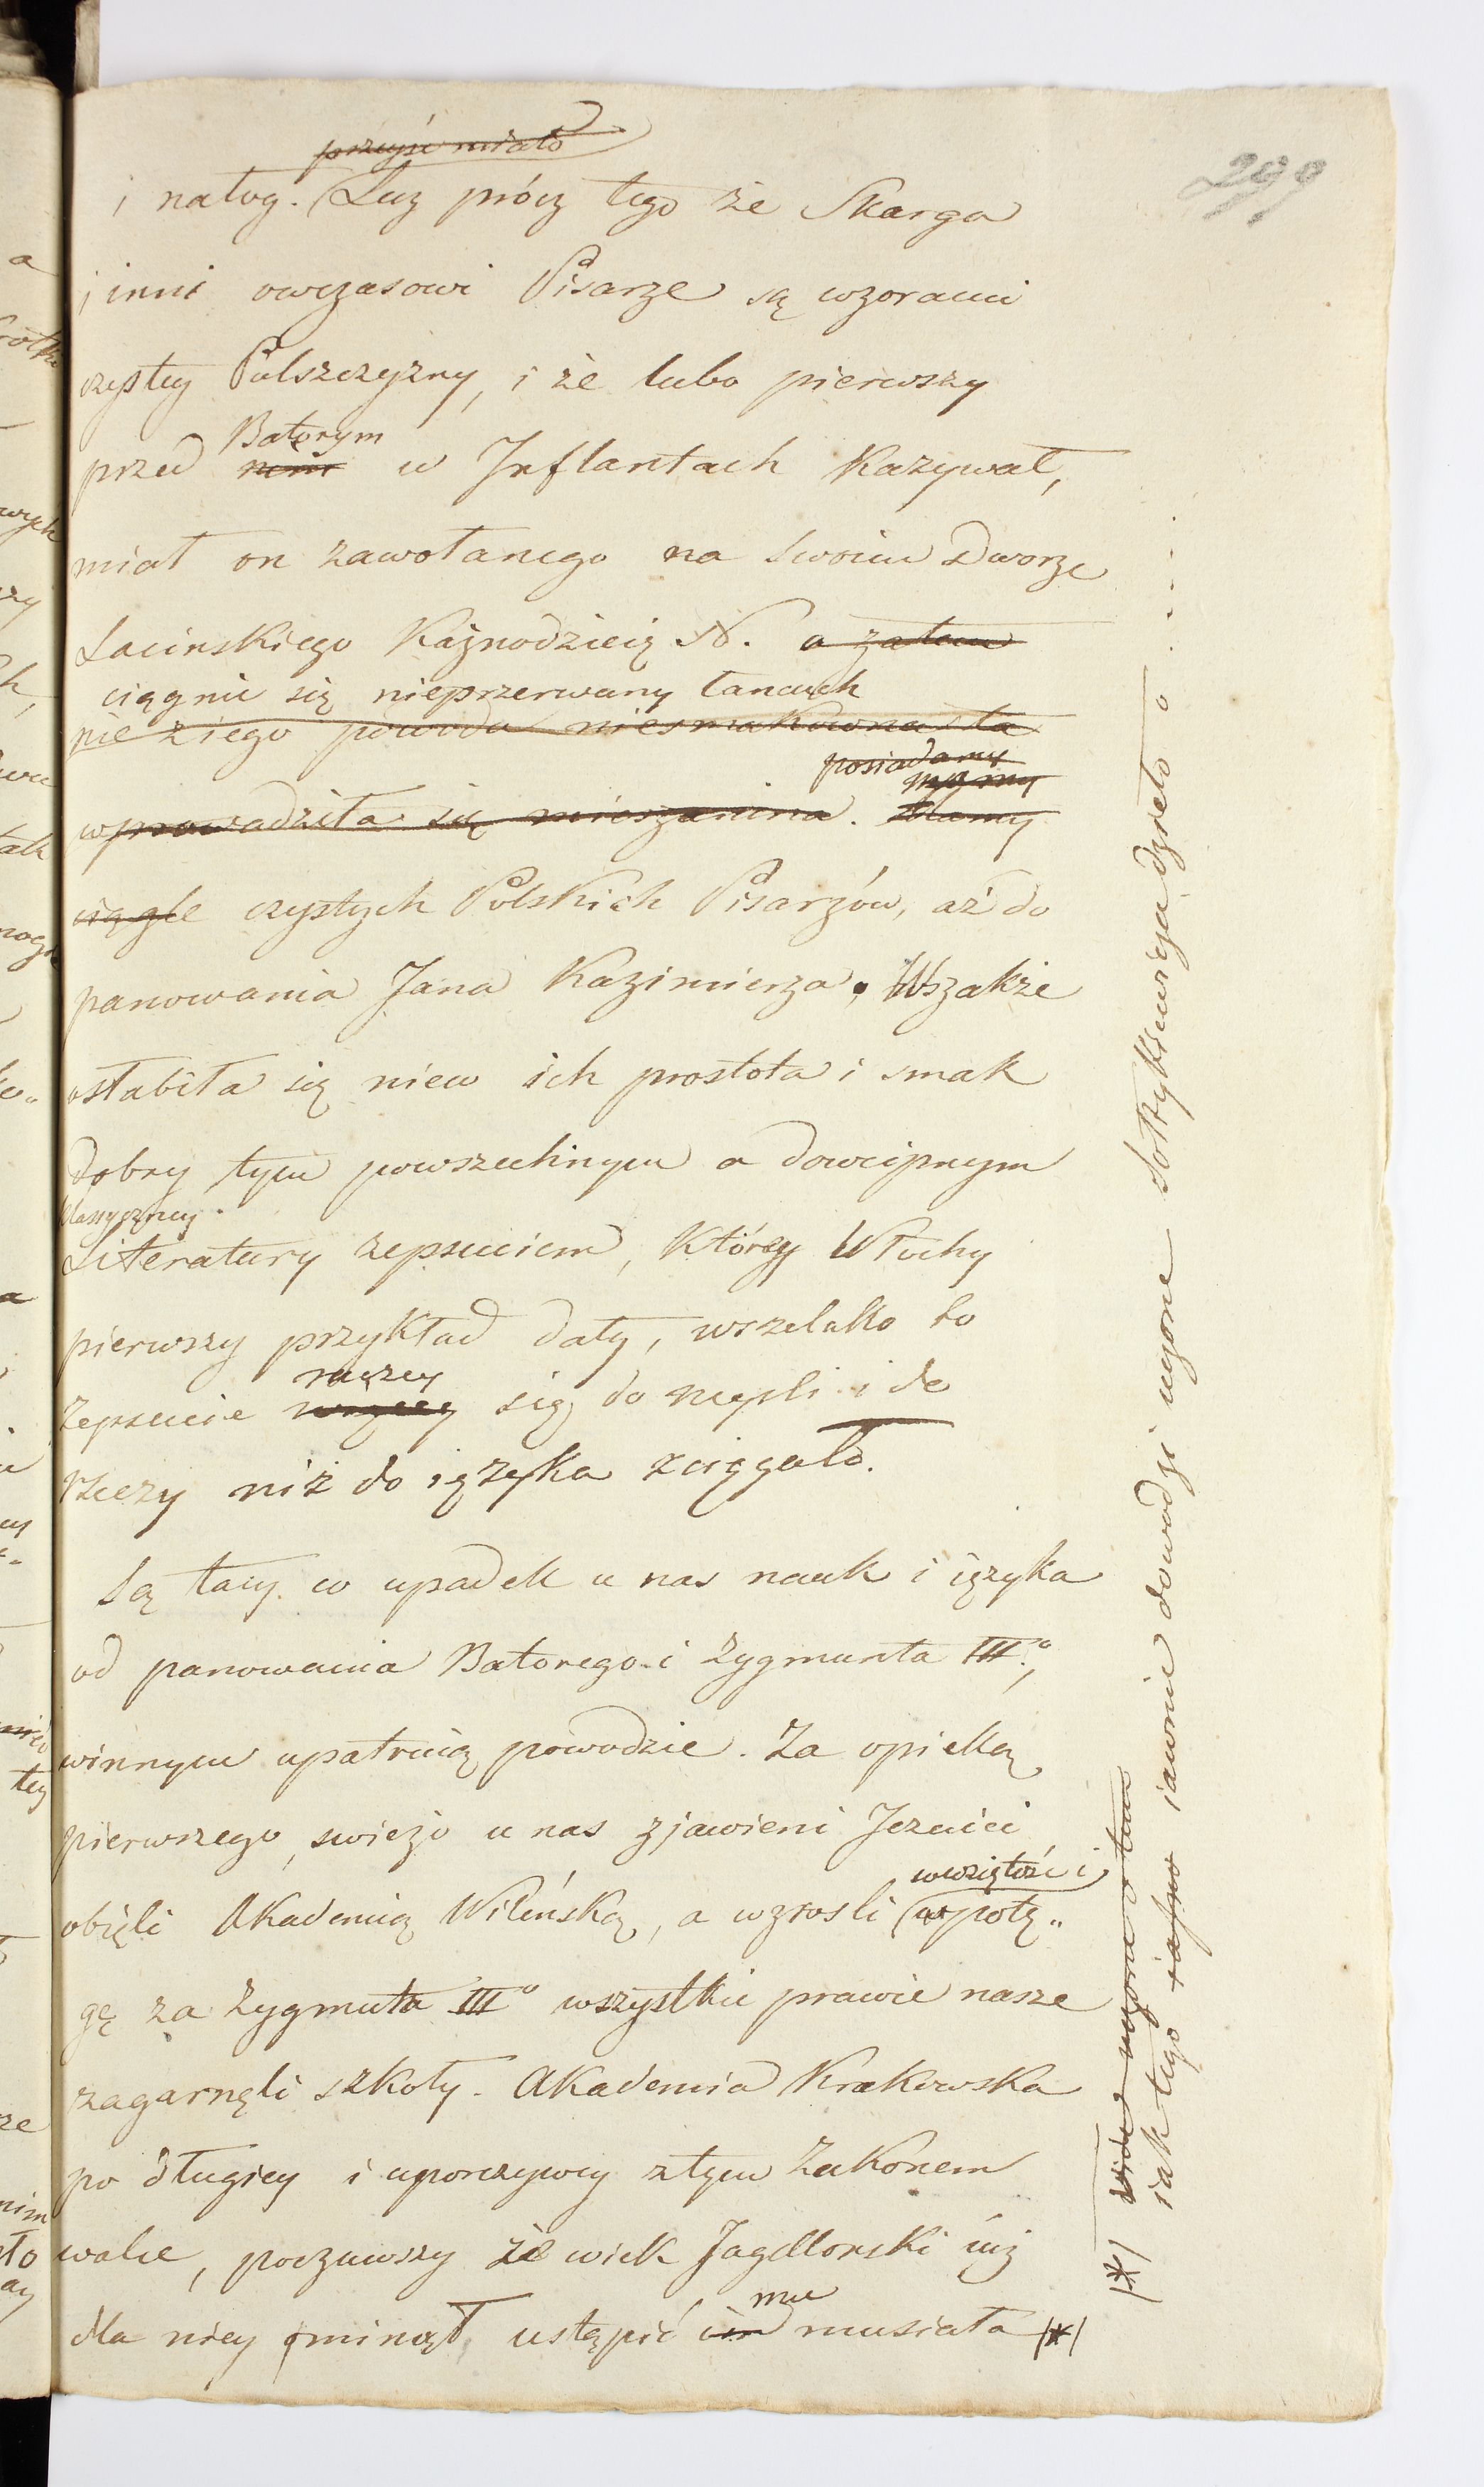 299
przyjść miało
i nałog. (Lecz prócz tego że Skarga
i inni owczasowi Pisarze są wzorami
czystey Polszczyzny, i że lubo pierwszy
Batorym
przed nim w Inflantach Kazywał,
miał on zawołanego na swoim Dworze
Łacinskiego Kaznodzieię N. a zatem
ciągnie się nieprzerwany łancuch
nie z iego powodu niesmakowna ta
posiadamy
mamy
wprowadziła się mieszanina. Mamy
ciągle czystych Polskich Pisarzów, aż do
panowania Jana Kazimierza. Wszakże
osłabiła się niew ich prostota i smak
dobry tym powszechnym a dowcipnym
klassyczney
Literatury zepsuciem, którey Włochy
pierwszy przykład dały, wszelako to
raczey
Zepsucie więcey się do mysli i do
rzeczy niż do ięzyka zciągało.
Są tacy. co upadek u nas nauk i ięzyka
od panowania Batorego i Zygmunta III.º,
winnym upatruią powodzie. Za opieką
pierwszego, swieżo u nas zjawieni Jezuici
wwziętość i
obięli Akademią Wileńską, a wzrosli (w potę„
gę za Zygmuta IIIº wszystkie prawie nasze
zagarnęli szkoły. Akademia Krakowska
po długiey i uporczywey ztym Zakonem
walce, poczuwszy że wiek Jagellonski iuż
mu
dla niey minął, ustąpić im musiała |*|
|*| o tem
iak tego iasno iawnie dowodzi uczone Sołtykiewicza dzieło o . . . .